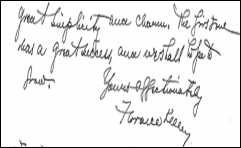 great simplicity and charm. The first one
was a great success, and we shall
soon.
Yours affectionately
Florence Kelley